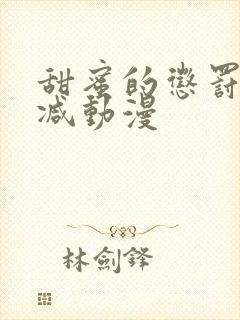 甜蜜的懲罰
减動漫
林劍鋒